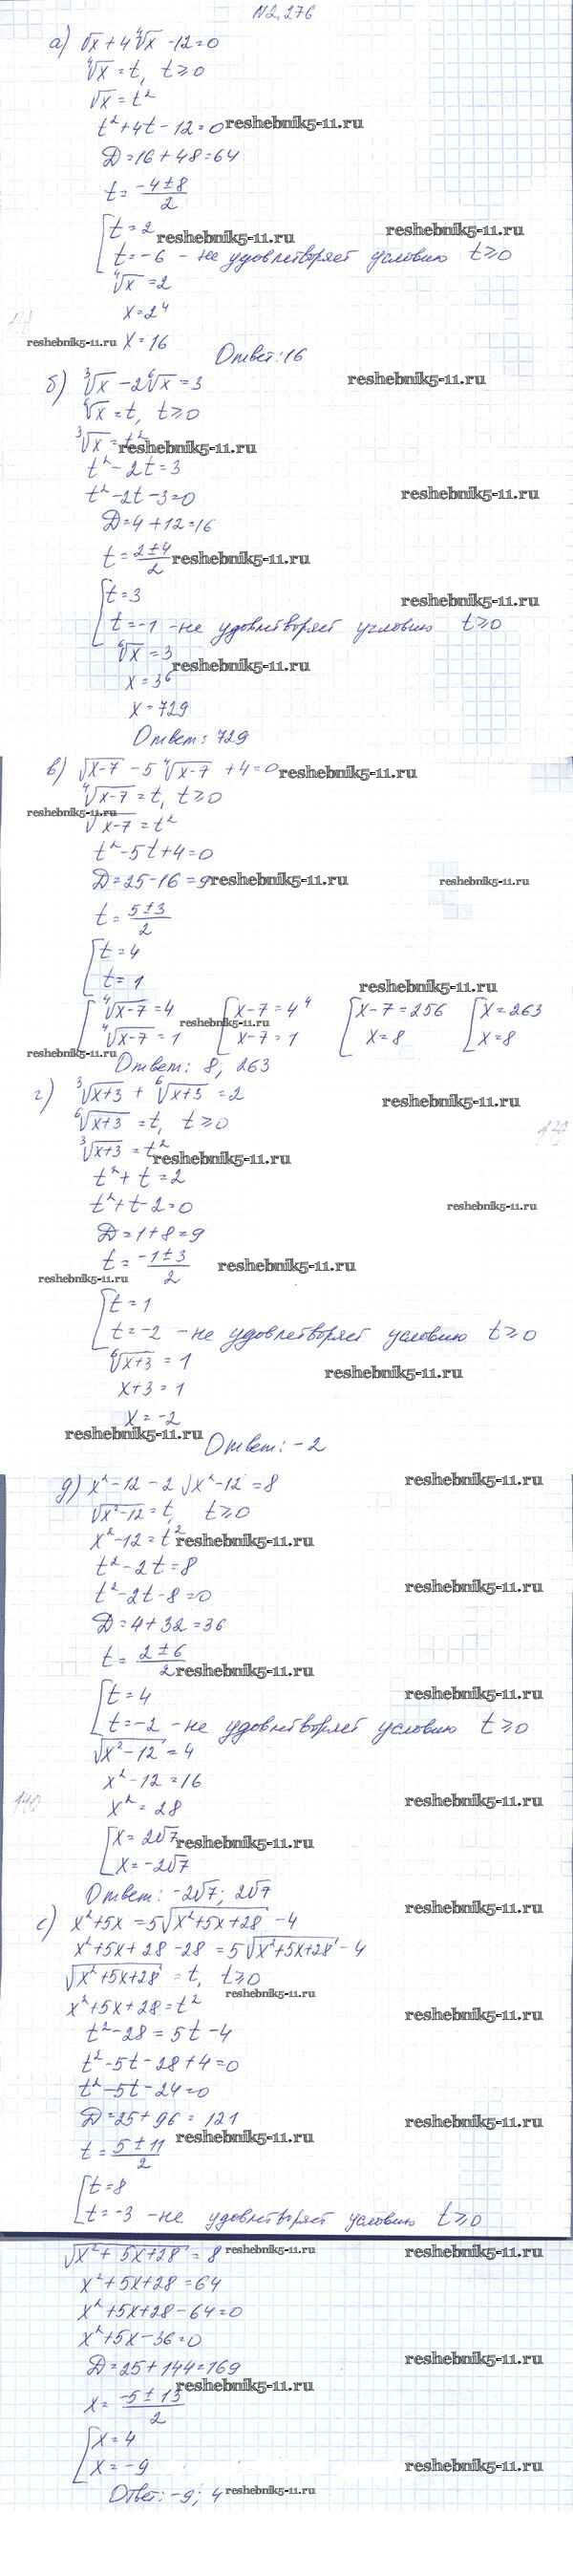 N2,276
а) √x + 4 ∜x - 12 = 0
∜x = t, t ≥ 0
√x = t²
t² + 4t - 12 = 0 reshebnik5-11.ru
D = 16 + 48 = 64
t = (-4 ± 8)/2
[t = 2 reshebnik5-11.ru reshebnik5-11.ru
t = -6 - не удовлетворяет условию t ≥ 0
∜x = 2
x = 2⁴
reshebnik5-11.ru x = 16
Ответ: 16
б) ∛x - 2 ⁶√x = 3 reshebnik5-11.ru
⁶√x = t, t ≥ 0
∛x = t² reshebnik5-11.ru
t² - 2t = 3
t² - 2t - 3 = 0 reshebnik5-11.ru
D = 4 + 12 = 16
t = (2 ± 4)/2 reshebnik5-11.ru
[t = 3 reshebnik5-11.ru
t = -1 - не удовлетворяет условию t ≥ 0
⁶√x = 3 reshebnik5-11.ru
x = 3⁶
x = 729
Ответ: 729
в) √(x-7) - 5 ∜(x-7) + 4 = 0 reshebnik5-11.ru
∜(x-7) = t, t ≥ 0
reshebnik5-11.ru √(x-7) = t²
t² - 5t + 4 = 0
D = 25 - 16 = 9 reshebnik5-11.ru reshebnik5-11.ru
t = (5 ± 3)/2
[t = 4
t = 1 reshebnik5-11.ru
[∜(x-7) = 4 [x - 7 = 4⁴ [x - 7 = 256 [x = 263
reshebnik5-11.ru reshebnik5-11.ru
∜(x-7) = 1 x - 7 = 1 x = 8 x = 8
Ответ: 8, 263
г) ∛(x+3) + ⁶√(x+3) = 2 reshebnik5-11.ru
⁶√(x+3) = t, t ≥ 0
∛(x+3) = t² reshebnik5-11.ru
t² + t = 2
t² + t - 2 = 0 reshebnik5-11.ru
D = 1 + 8 = 9
t = (-1 ± 3)/2 reshebnik5-11.ru
reshebnik5-11.ru
[t = 1
t = -2 - не удовлетворяет условию t ≥ 0
⁶√(x+3) = 1 reshebnik5-11.ru
x + 3 = 1
x = -2
reshebnik5-11.ru
Ответ: -2
д) x² - 12 - 2 √(x² - 12) = 8 reshebnik5-11.ru
√(x² - 12) = t, t ≥ 0
x² - 12 = t² reshebnik5-11.ru
t² - 2t = 8
t² - 2t - 8 = 0 reshebnik5-11.ru
D = 4 + 32 = 36
t = (2 ± 6)/2 reshebnik5-11.ru
[t = 4 reshebnik5-11.ru
t = -2 - не удовлетворяет условию t ≥ 0
√(x² - 12) = 4
x² - 12 = 16
x² = 28 reshebnik5-11.ru
[x = 2√7 reshebnik5-11.ru
x = -2√7
Ответ: -2√7; 2√7
reshebnik5-11.ru
е) x² + 5x = 5√(x² + 5x + 28) - 4
x² + 5x + 28 - 28 = 5√(x² + 5x + 28) - 4
√(x² + 5x + 28) = t, t ≥ 0
reshebnik5-11.ru
x² + 5x + 28 = t² reshebnik5-11.ru
t² - 28 = 5t - 4
t² - 5t - 28 + 4 = 0
t² - 5t - 24 = 0
D = 25 + 96 = 121 reshebnik5-11.ru
t = (5 ± 11)/2 reshebnik5-11.ru
[t = 8
t = -3 - не удовлетворяет условию t ≥ 0
√(x² + 5x + 28) = 8 reshebnik5-11.ru reshebnik5-11.ru
x² + 5x + 28 = 64
x² + 5x + 28 - 64 = 0
x² + 5x - 36 = 0
D = 25 + 144 = 169 reshebnik5-11.ru
x = (-5 ± 13)/2 reshebnik5-11.ru
[x = 4
x = -9 reshebnik5-11.ru
Ответ: -9; 4 reshebnik5-11.ru